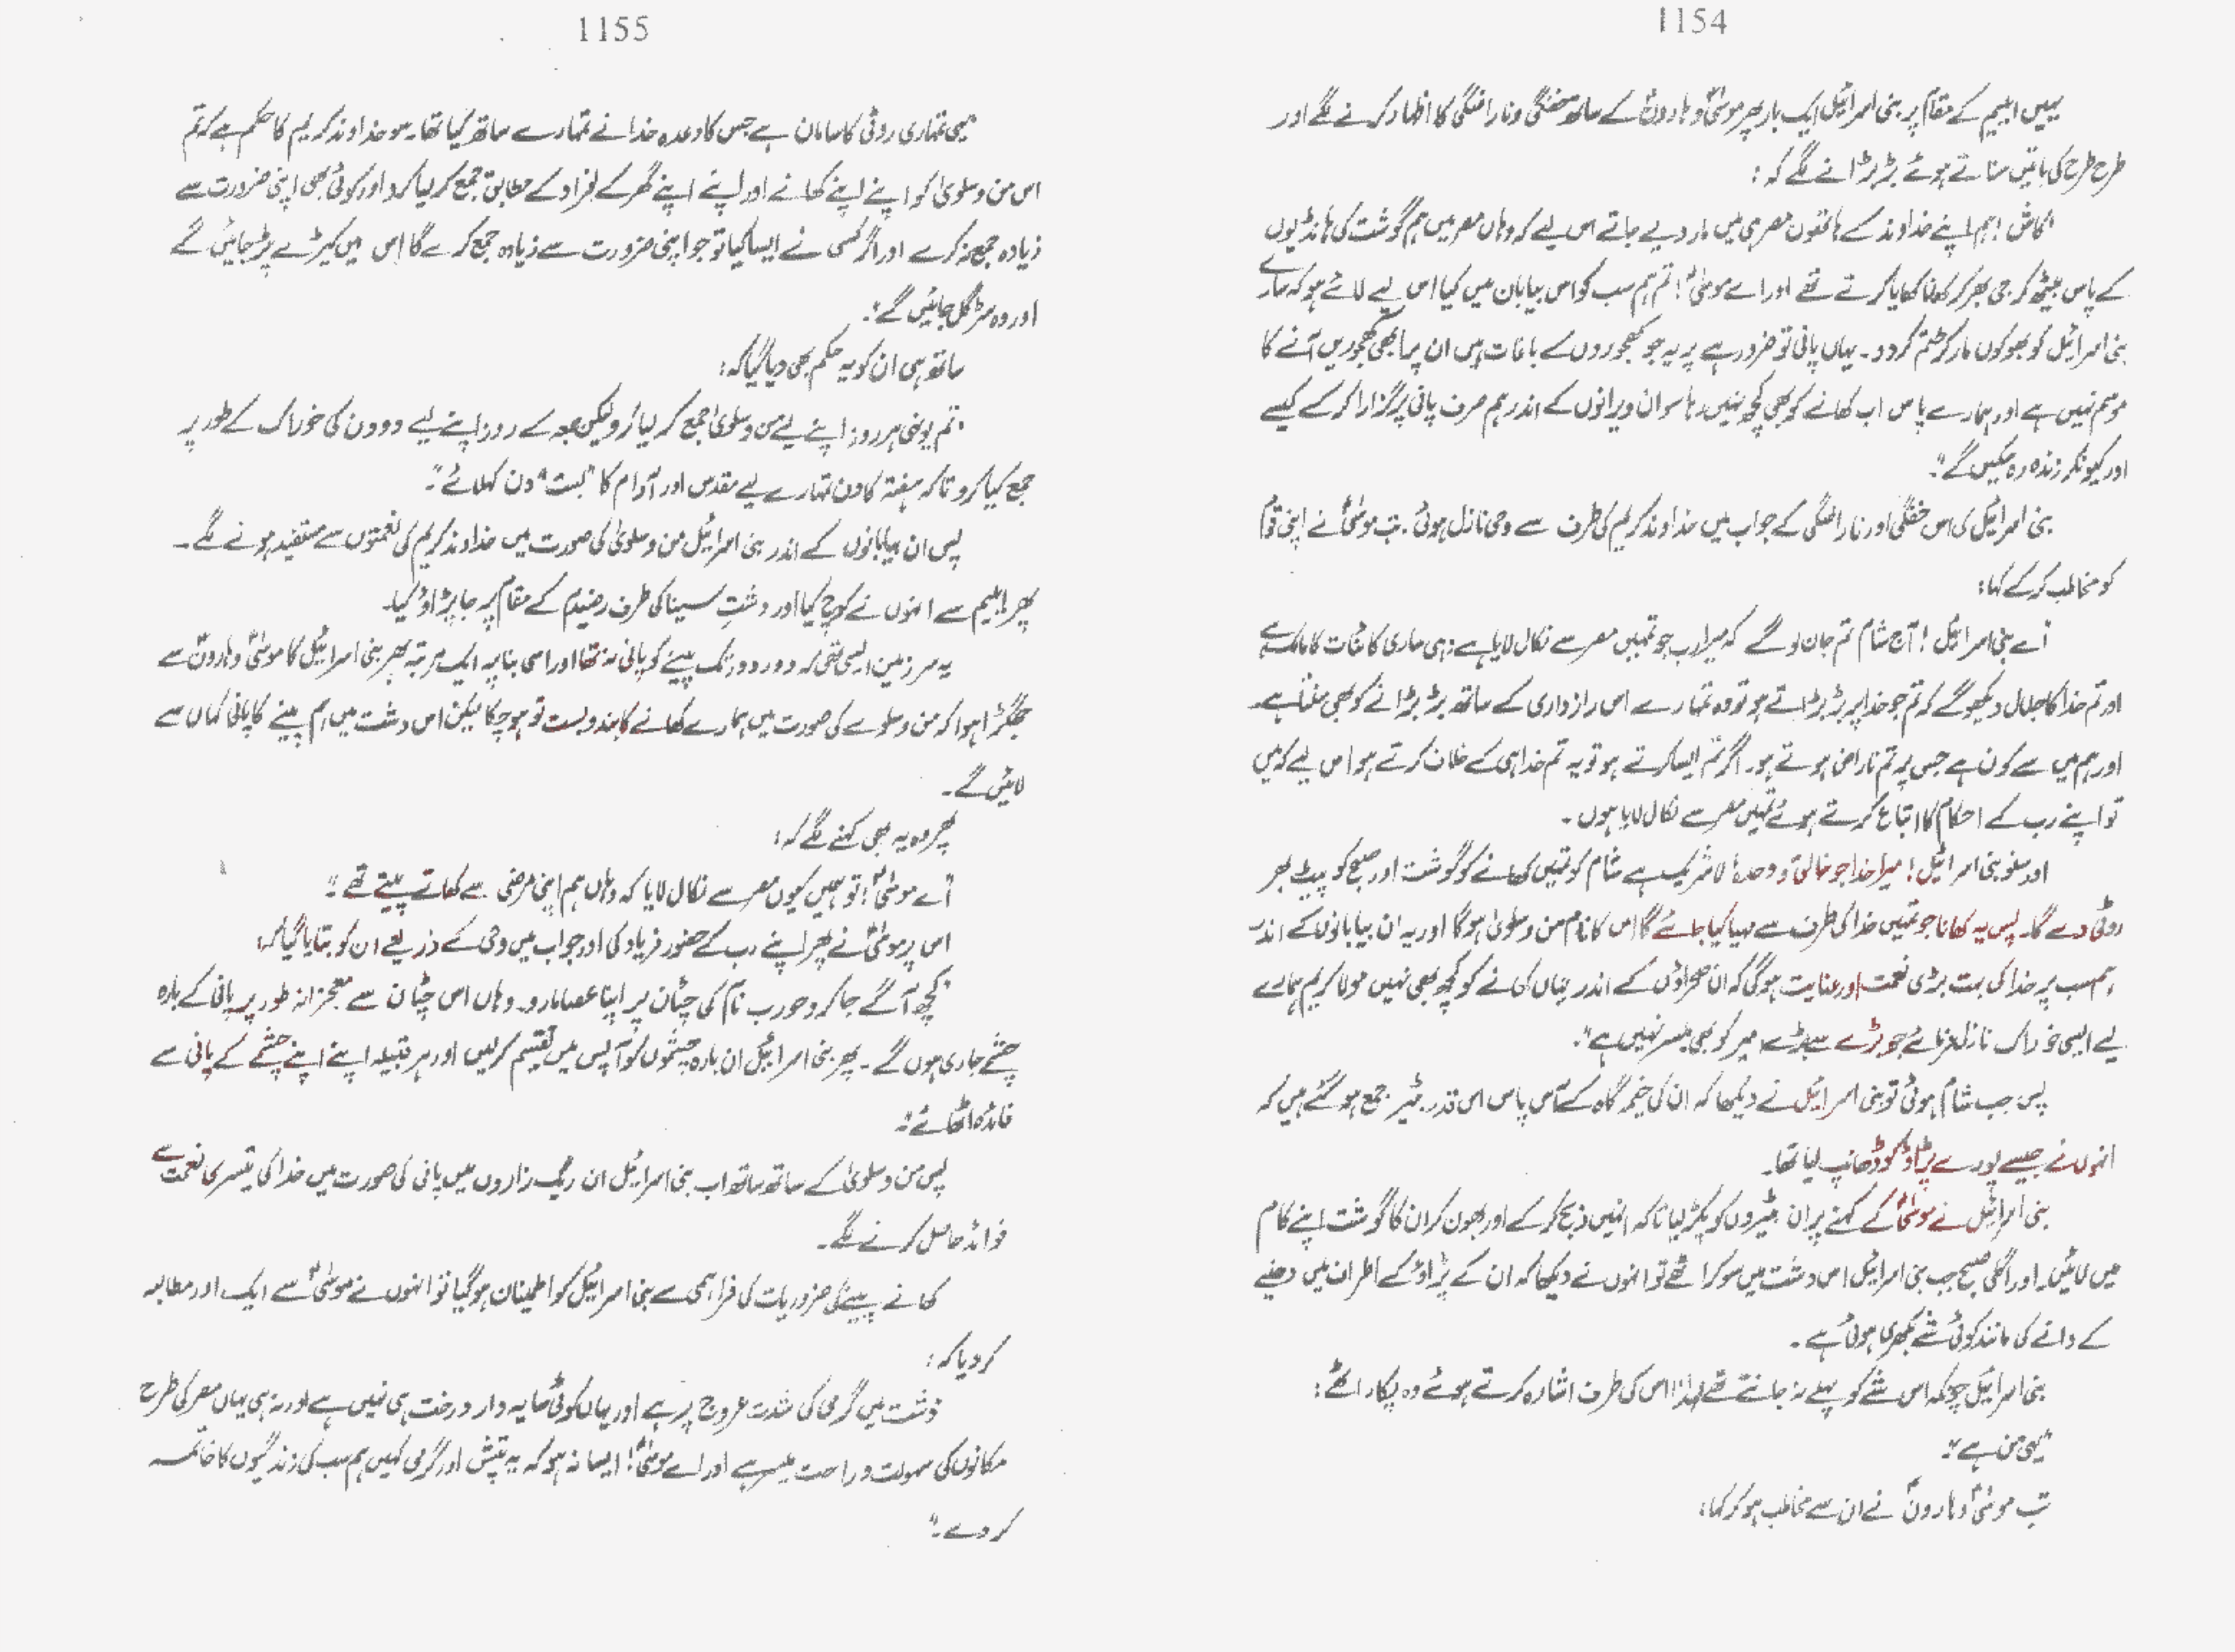 1154
یہیں ایلیم کے مقام پر بنی اسرائیل ایک بار پھر موسیٰؑ و ہارونؑ کے ساتھ خفگی و ناراضگی کا اظہار کرنے لگے اور
طرح طرح کی باتیں سناتے ہوئے بڑبڑانے لگے کہ :
"کاش ! ہم اپنے خداوند کے ہاتھوں مصر ہی میں مار دیے جاتے اس لیے کہ وہاں مصر میں ہم گوشت کی ہانڈیوں
کے پاس بیٹھ کر جی بھر کر کھانا کھایا کرتے تھے اور اے موسیٰؑ ! تم ہم سب کو اس بیابان میں کیا اس لیے لائے ہو کہ سارے
بنی اسرائیل کو بھوکوں مار کر ختم کر دو۔ یہاں پانی تو ضرور ہے پر یہ جو کھجوروں کے باغات ہیں ان پر ابھی کھجوریں آنے کا
موسم نہیں ہے اور ہمارے پاس اب کھانے کو بھی کچھ نہیں رہا سو ان ویرانوں کے اندر ہم صرف پانی پر گزارا کر کے کیسے
اور کیونکر زندہ رہ سکیں گے"۔
بنی اسرائیل کی اس خفگی اور ناراضگی کے جواب میں خداوند کریم کی طرف سے وحی نازل ہوئی۔ تب موسیٰؑ نے اپنی قوم
کو مخاطب کر کے کہا :
"اے بنی اسرائیل ! آج شام تم جان لو گے کہ میرا رب جو تمہیں مصر سے نکال لایا ہے وہی ساری کائنات کا مالک ہے
اور تم خدا کا جلال دیکھو گے کہ تم جو خدا پر بڑبڑاتے ہو تو وہ تمہارے اس رازداری کے ساتھ بڑبڑانے کو بھی سنتا ہے۔
اور ہم میں سے کون ہے جس پر تم ناراض ہوتے ہو۔ اگر تم ایسا کرتے ہو تو یہ تم خدا ہی کے خلاف کرتے ہو اس لیے کہ میں
تو اپنے رب کے احکام کا اتباع کرتے ہوئے تمہیں مصر سے نکال لایا ہوں۔
اور سنو بنی اسرائیل ! میرا خدا جو خالق و وحدہٗ لاشریک ہے شام کو تمہیں کھانے کو گوشت اور صبح کو پیٹ بھر
روٹی دے گا۔ پس یہ کھانا جو تمہیں خدا کی طرف سے مہیا کیا جائے گا اس کا نام من و سلویٰ ہو گا اور یہ ان بیابانوں کے اندر
ہم سب پر خدا کی بہت بڑی نعمت اور عنایت ہو گی کہ ان صحراؤں کے اندر یہاں کھانے کو کچھ بھی نہیں مولا کریم ہمارے
لیے ایسی خوراک نازل فرمائے جو بڑے سے بڑے امیر کو بھی میسر نہیں ہے"۔
پس جب شام ہوئی تو بنی اسرائیل نے دیکھا کہ ان کی خیمہ گاہ کے آس پاس اس قدر بٹیر جمع ہو گئے ہیں کہ
انہوں نے جیسے پورے پڑاؤ کو ڈھانپ لیا تھا۔
بنی اسرائیل نے موسیٰؑ کے کہنے پر ان بٹیروں کو پکڑ لیا تاکہ انہیں ذبح کر کے اور بھون کر ان کا گوشت اپنے کام
میں لائیں۔ اور اگلی صبح جب بنی اسرائیل اس دشت میں سو کر اٹھے تو انہوں نے دیکھا کہ ان کے پڑاؤ کے اطراف میں دھنیے
کے دانے کی مانند کوئی شے بکھری ہوئی ہے۔
بنی اسرائیل چونکہ اس شے کو پہلے نہ جانتے تھے لہٰذا اس کی طرف اشارہ کرتے ہوئے وہ پکار اٹھے :
"یہی من ہے"۔
تب موسیٰؑ و ہارونؑ نے ان سے مخاطب ہو کر کہا :
1155
"یہی تمہاری روٹی کا سامان ہے جس کا وعدہ خدا نے تمہارے ساتھ کیا تھا۔ سو خداوند کریم کا حکم ہے کہ تم
اس من و سلویٰ کو اپنے اپنے کھانے اور اپنے اپنے گھر کے افراد کے مطابق جمع کر لیا کرو اور کوئی بھی اپنی ضرورت سے
زیادہ جمع نہ کرے اور اگر کسی نے ایسا کیا تو جو اپنی ضرورت سے زیادہ جمع کرے گا اس میں کیڑے پڑ جائیں گے
اور وہ سڑ گل جائیں گے"۔
ساتھ ہی ان کو یہ حکم بھی دیا گیا کہ :
"تم یونہی ہر روز اپنے لیے من و سلویٰ جمع کر لیا کرو لیکن جمعہ کے روز اپنے لیے دو دن کی خوراک کے طور پر
جمع کیا کرو تاکہ ہفتہ کا دن تمہارے لیے مقدس اور آرام کا "سبت" دن کہلائے"۔
پس ان بیابانوں کے اندر بنی اسرائیل من و سلویٰ کی صورت میں خداوند کریم کی نعمتوں سے مستفید ہونے لگے۔
پھر ایلیم سے انہوں نے کوچ کیا اور دشتِ سینا کی طرف رفیدیم کے مقام پر جا پڑاؤ کیا۔
یہ سرزمین ایسی تھی کہ دور دور تک پینے کو پانی نہ تھا اور اسی بنا پر ایک مرتبہ پھر بنی اسرائیل کا موسیٰؑ و ہارونؑ سے
جھگڑا ہوا کہ من و سلوے کی صورت میں ہمارے کھانے کا بندوبست تو ہو چکا لیکن اس دشت میں ہم پینے کا پانی کہاں سے
لائیں گے۔
پھر وہ یہ بھی کہنے لگے کہ :
"اے موسیٰؑ ! تو ہمیں کیوں مصر سے نکال لایا کہ وہاں ہم اپنی مرضی سے کھاتے پیتے تھے"۔
اس پر موسیٰؑ نے پھر اپنے رب کے حضور فریاد کی اور جواب میں وحی کے ذریعے ان کو بتایا گیا کہ :
"کچھ آگے جا کر و حورب نام کی چٹان پر اپنا عصا مارو۔ وہاں اس چٹان سے معجزانہ طور پر پانی کے بارہ
چشمے جاری ہوں گے۔ پھر بنی اسرائیل ان بارہ چشموں کو آپس میں تقسیم کر لیں اور ہر قبیلہ اپنے اپنے چشمے کے پانی سے
فائدہ اٹھائے"۔
پس من و سلویٰ کے ساتھ ساتھ اب بنی اسرائیل ان ریگ زاروں میں پانی کی صورت میں خدا کی تیسری نعمت سے
فوائد حاصل کرنے لگے۔
کھانے پینے کی ضروریات کی فراہمی سے بنی اسرائیل کو اطمینان ہو گیا تو انہوں نے موسیٰؑ سے ایک اور مطالبہ
کر دیا کہ :
"دشت میں گرمی کی شدت عروج پر ہے اور یہاں کوئی سایہ دار درخت ہی نہیں ہے اور نہ ہی یہاں مصر کی طرح
مکانوں کی سہولت و راحت میسر ہے اور اے موسیٰؑ ! ایسا نہ ہو کہ یہ تپش اور گرمی کہیں ہم سب کی زندگیوں کا خاتمہ
کر دے۔"